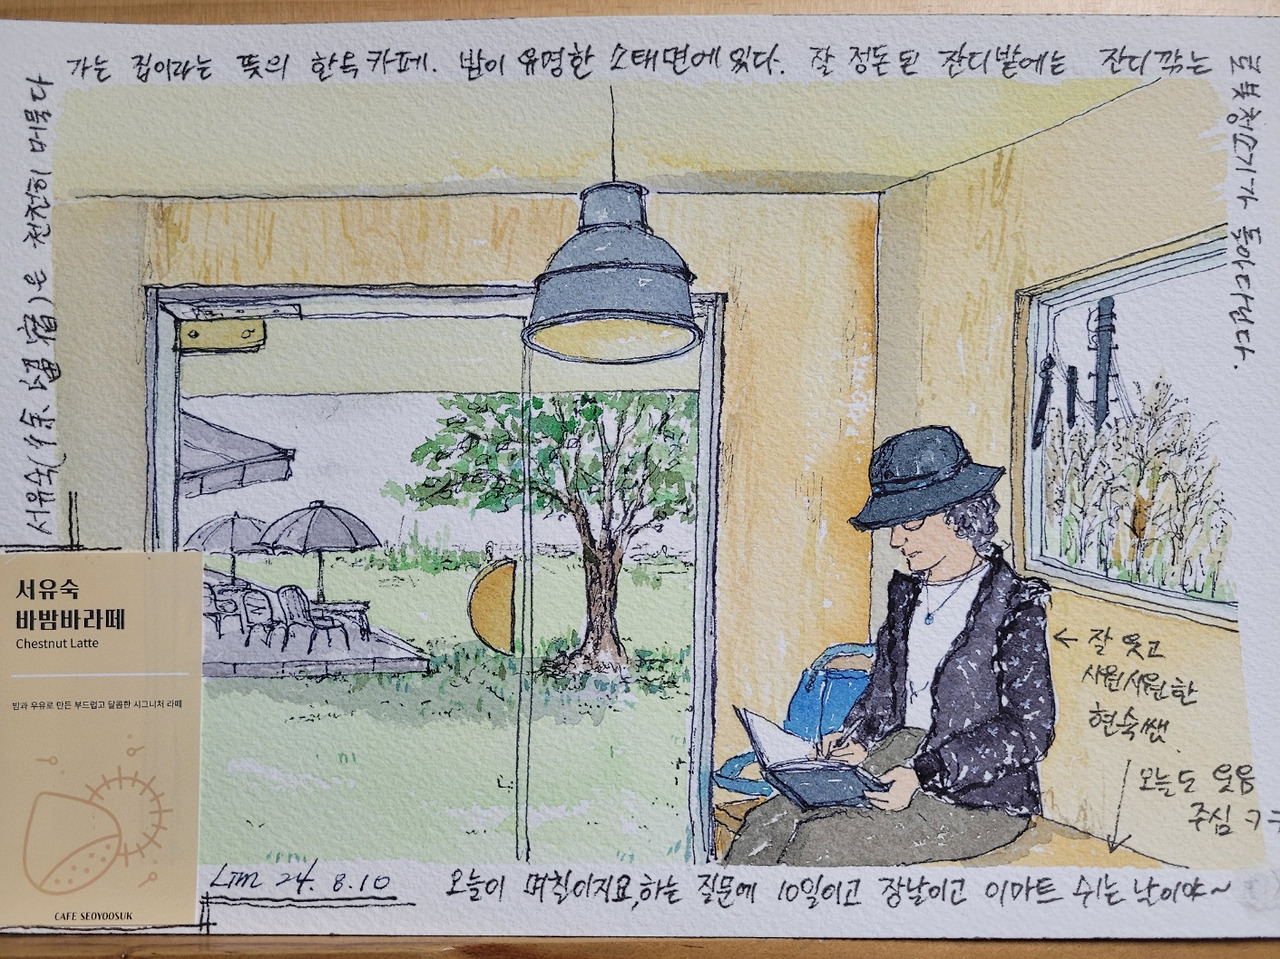 서유숙(徐留宿)은 천천히 머물다
가는 집이라는 뜻의 한옥카페. 밤이 유명한 소태면에 있다. 잘 정돈된 잔디밭에는 잔디 깎는
로봇청소기가 돌아다닌다.
서유숙
바밤바라떼
Chestnut Latte
밤과 우유로 만든 부드럽고 달콤한 시그니처 라떼
CAFE SEOYOOSUK
← 잘 웃고
시원시원한
현숙쌤.
오늘도 웃음
주심
Lim 24. 8. 10
오늘이 며칠이지요,하는 질문에 10일이고 장날이고 이마트 쉬는 날이야~